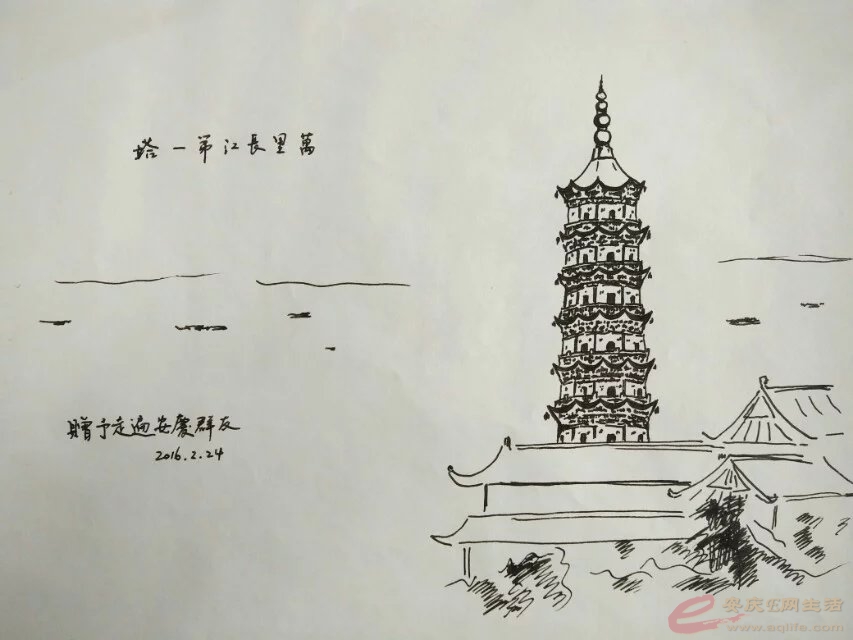 萬里長江第一塔
贈予走遍安慶群友
2016.2.24
安庆E网生活
www.aqlife.com